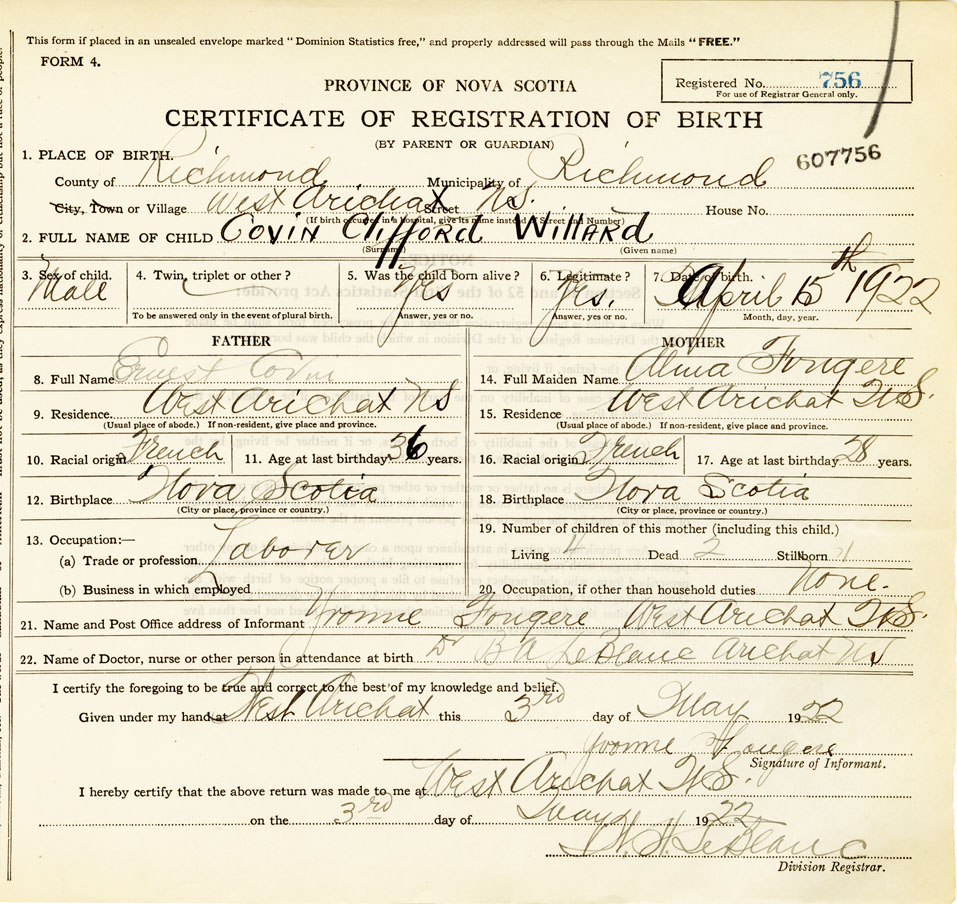 This form if placed in an unsealed envelope marked "Dominion Statistics free," and properly addressed will pass through the Mails "FREE."
FORM 4.
PROVINCE OF NOVA SCOTIA
Registered No. 756
For use of Registrar General only.
CERTIFICATE OF REGISTRATION OF BIRTH
(BY PARENT OR GUARDIAN)
607756
1. PLACE OF BIRTH.
County of Richmond Municipality of Richmond
City, Town or Village West Arichat Street N.S. House No.
(If birth occurred in a hospital, give its name instead of Street and Number)
2. FULL NAME OF CHILD Covin Clifford Willard
(Surname) (Given name)
3. Sex of child. 4. Twin, triplet or other? 5. Was the child born alive? 6. Legitimate? 7. Date of birth.
Male Yes Yes. April 15th 1922
To be answered only in the event of plural birth. Answer, yes or no. Answer, yes or no. Month, day, year.
FATHER MOTHER
8. Full Name Ernest Covin 14. Full Maiden Name Alma Fougere
9. Residence. West Arichat NS 15. Residence West Arichat N.S.
(Usual place of abode.) If non-resident, give place and province. (Usual place of abode.) If non-resident, give place and province.
10. Racial origin French 11. Age at last birthday 36 years. 16. Racial origin French 17. Age at last birthday 28 years.
12. Birthplace Nova Scotia 18. Birthplace Nova Scotia
(City or place, province or country.) (City or place, province or country.)
13. Occupation:— 19. Number of children of this mother (including this child.)
(a) Trade or profession Laborer Living 4 Dead 2 Stillborn
(b) Business in which employed 20. Occupation, if other than household duties None.
21. Name and Post Office address of Informant Yvonne Fougere West Arichat N.S.
22. Name of Doctor, nurse or other person in attendance at birth Dr B A LeBlanc Arichat NS
I certify the foregoing to be true and correct to the best of my knowledge and belief.
Given under my hand at West Arichat this 3rd day of May 1922
Yvonne Fougere
Signature of Informant.
I hereby certify that the above return was made to me at West Arichat N.S.
on the 3rd day of May 1922
LeBlanc
Division Registrar.